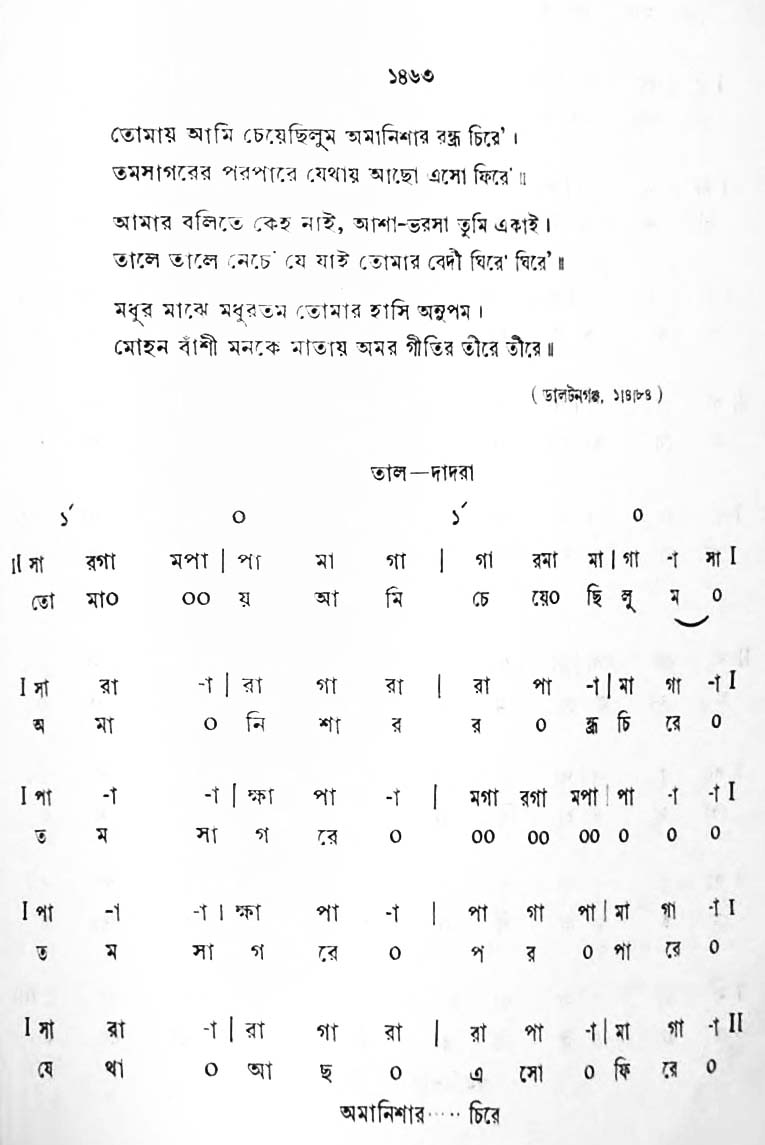 ১৪৬৩
তোমায় আমি চেয়েছিলুম অমানিশার রন্ধ্র চিরে'।
তমসাগরের পরপারে যেথায় আছো এসো ফিরে'॥
আমার বলিতে কেহ নাই, আশা-ভরসা তুমি একাই।
তালে তালে নেচে' যে যাই তোমার বেদী ঘিরে' ঘিরে'॥
মধুর মাঝে মধুরতম তোমার হাসি অনুপম।
মোহন বাঁশী মনকে মাতায় অমর গীতির তীরে তীরে॥
( ডালটনগঞ্জ, ১।৪।৮৪ )
তাল—দাদরা
১´ ০ ১´ ০
II সা রগা মপা | পা মা গা | গা রমা মা | গা -া সা I
তো মা০ ০০ য় আ মি চে য়ে০ ছি লু ম ০
I সা রা -া | রা গা রা | রা পা -া | মা গা -া I
অ মা ০ নি শা র র ০ ন্ধ্র চি রে ০
I পা -া -া | ক্ষা পা -া | মগা রগা মপা | পা -া -া I
ত ম সা গ রে ০ ০০ ০০ ০০ ০ ০ ০
I পা -া -া | ক্ষা পা -া | পা গা পা | মা গা -া I
ত ম সা গ রে ০ প র ০ পা রে ০
I সা রা -া | রা গা রা | রা পা -া | মা গা -া II
যে থা ০ আ ছ ০ এ সো ০ ফি রে ০
অমানিশার ····· চিরে